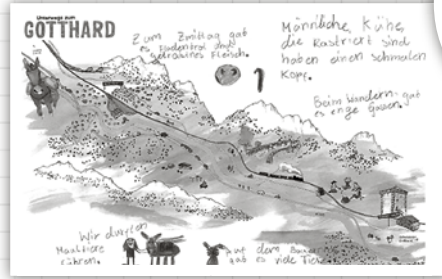 Unterwegs zum
GOTTHARD
Zum Zmittag gab
es Fladenbrot und
Fleisch.
Männliche Kühe,
die kastriert sind
haben einen schmalen
Kopf.
Beim Wandern gab
es enge Gassen.
Wir durften
Maultiere
führen.
Auf dem Bauernhof
gab es viele Tiere